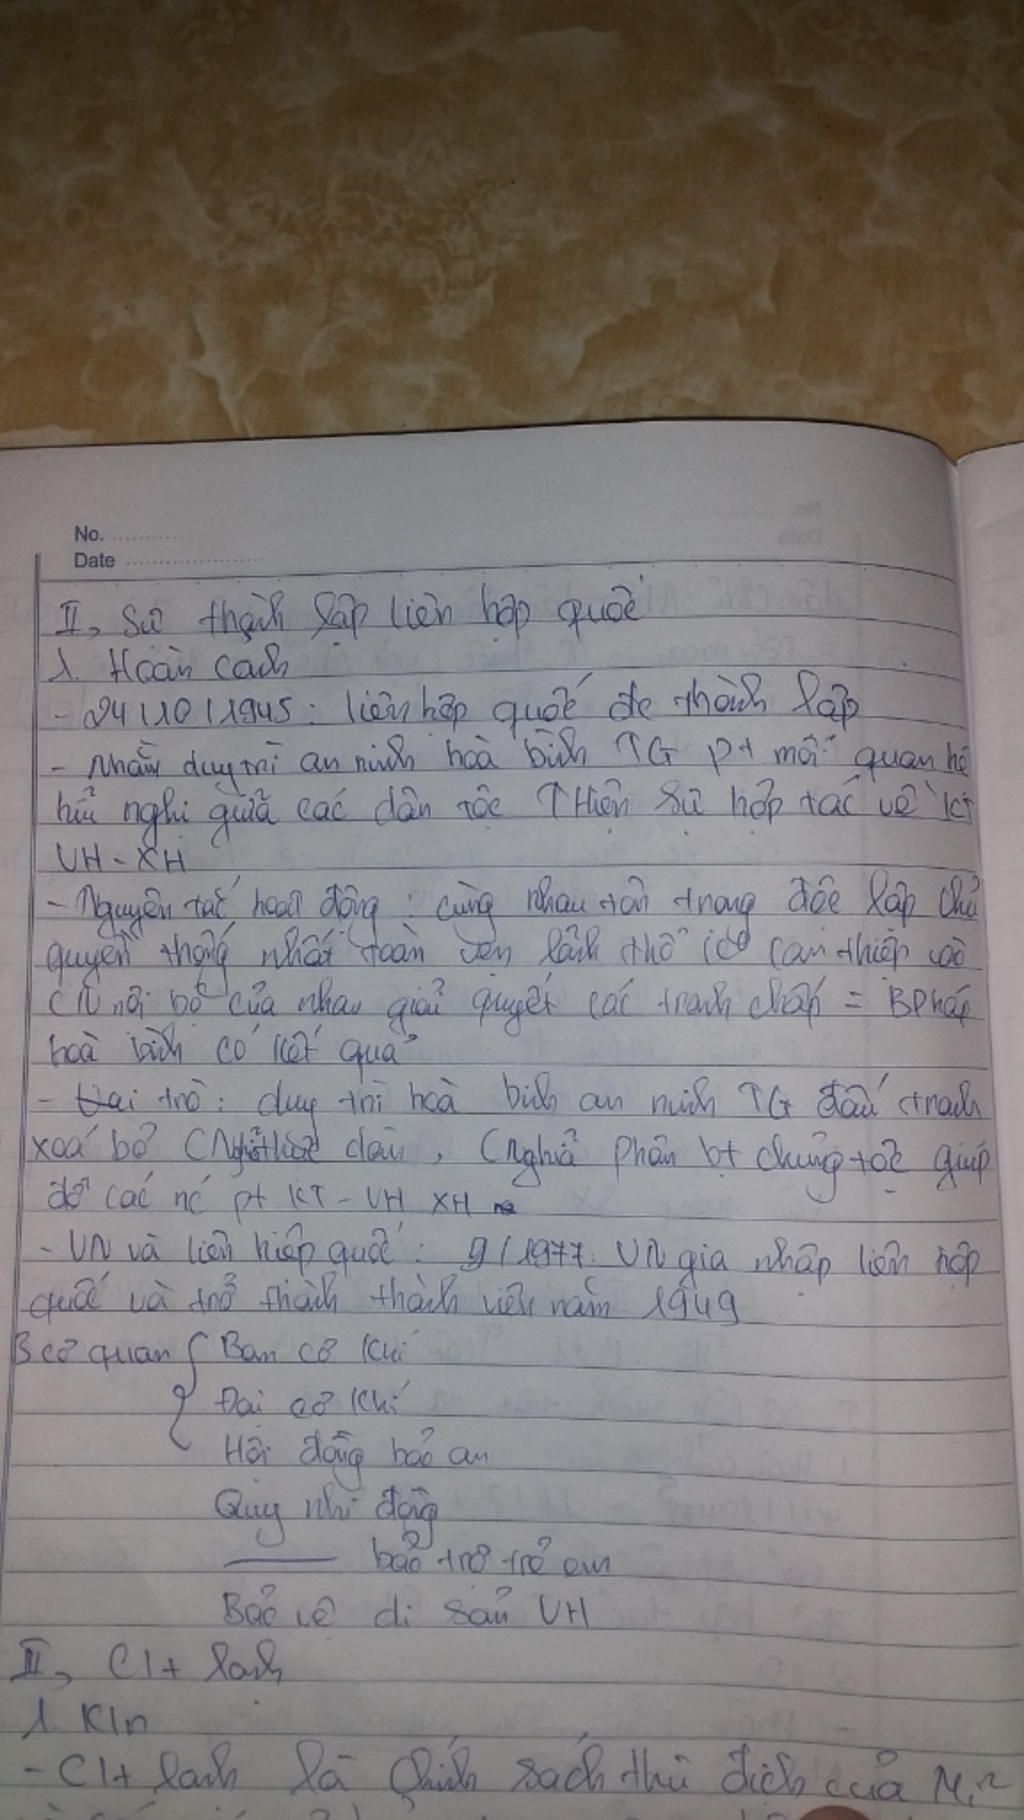 No.
Date
II, Sự thành lập liên hợp quốc
1. Hoàn cảnh
- 24/10/1945: liên hợp quốc đc thành lập
- Nhằm duy trì an ninh hoà bình TG pt mối quan hệ
hữu nghị giữa các dân tộc THiện sự hợp tác về KT
VH - XH
- Nguyên tắc hoạt động: cùng nhau tôn trọng độc lập chủ
quyền thống nhất toàn vẹn lãnh thổ can thiệp vào
CV nội bộ của nhau giải quyết các tranh chấp = BPháp
hoà bình có kết quả
- Vai trò: duy trì hoà bình an ninh TG đấu tranh
xoá bỏ dân, CNghĩa phân bt chủng tộc giúp
đỡ các nc pt KT - VH XH
- VN và liên hiệp quốc: 9/1977: VN gia nhập liên hợp
quốc và trở thành thành viên năm 1949
3 cơ quan { Ban cơ khí
Đại cơ khí
Hội đồng bảo an
Quỹ nhi đồng
—— bảo trợ trẻ em
Bảo vệ di sản VH
II, C/t lạnh
1. K/n
- C/t lạnh là chính sách thù địch của Mĩ